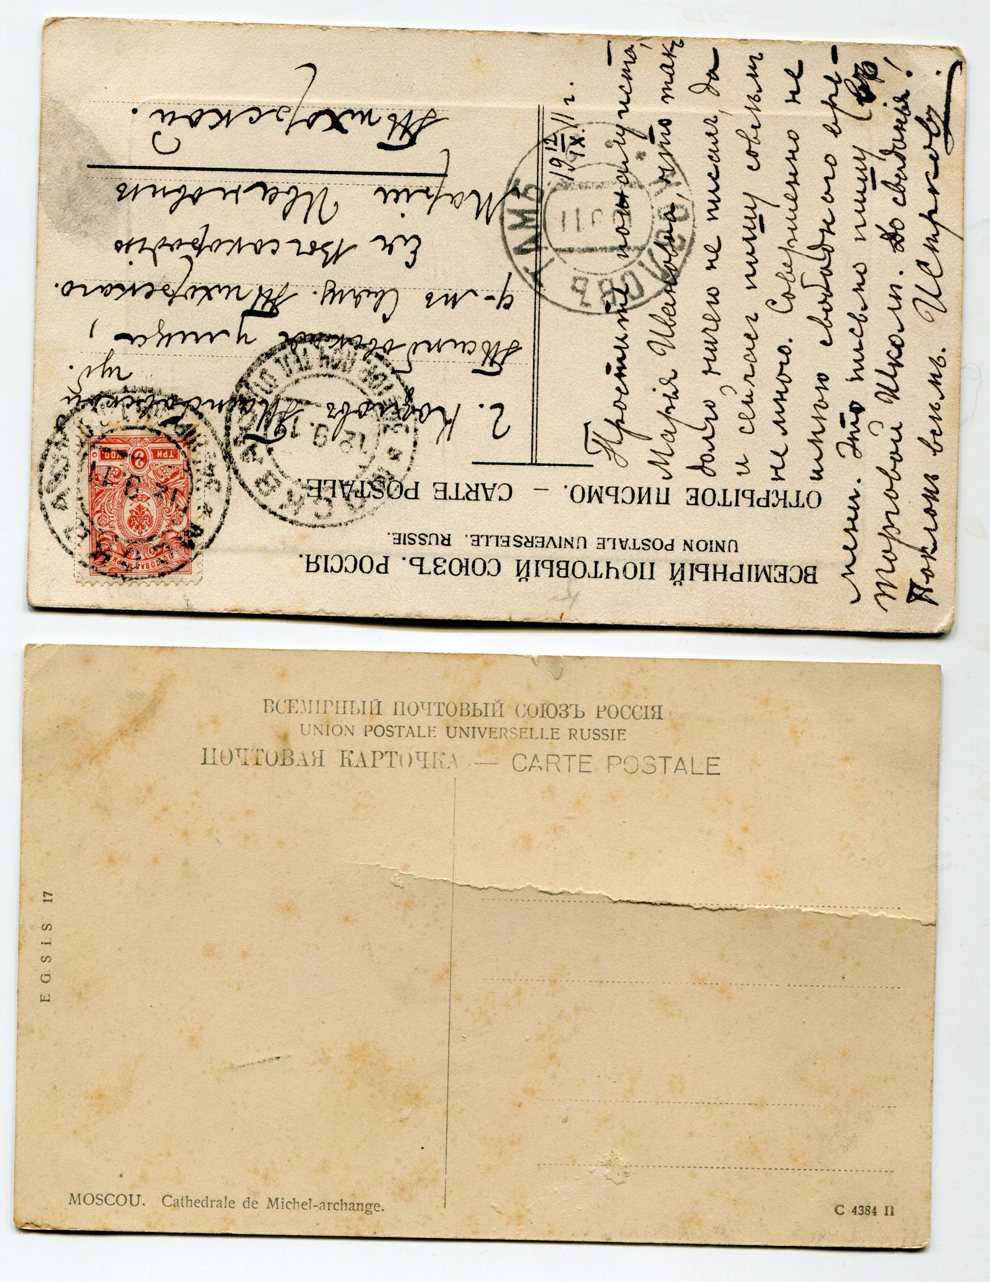 ВСЕМІРНЫЙ ПОЧТОВЫЙ СОЮЗЪ. РОССІЯ.
UNION POSTALE UNIVERSELLE. RUSSIE.
ОТКРЫТОЕ ПИСЬМО. — CARTE POSTALE.
г. Козловъ Тамбовской
губ.
Тамбовская улица,
д-мъ Свящ. Тихорскаго.
Ея Высокородію
Маріи Ивановнѣ
Тихорской.
19 12/IX 11 г.
Простите пожалуйста,
Марія Ивановна что такъ
долго ничего не писалъ, да
и сейчасъ пишу совсѣмъ
не много. Совершенно не
имѣю свободнаго вре-
мени. Это письмо пишу въ
Торговой Школѣ. До свиданья!
Поклонъ всѣмъ. И Стрковъ.
КОЗЛОВЪ ТАМБ.
МОСКВА
12.9.11
ТРИ КОП.
3
ВСЕМІРНЫЙ ПОЧТОВЫЙ СОЮЗЪ РОССІЯ
UNION POSTALE UNIVERSELLE RUSSIE
ПОЧТОВАЯ КАРТОЧКА — CARTE POSTALE
E G. S i. S 17
MOSCOU. Cathedrale de Michel-archange.
C 4384 II